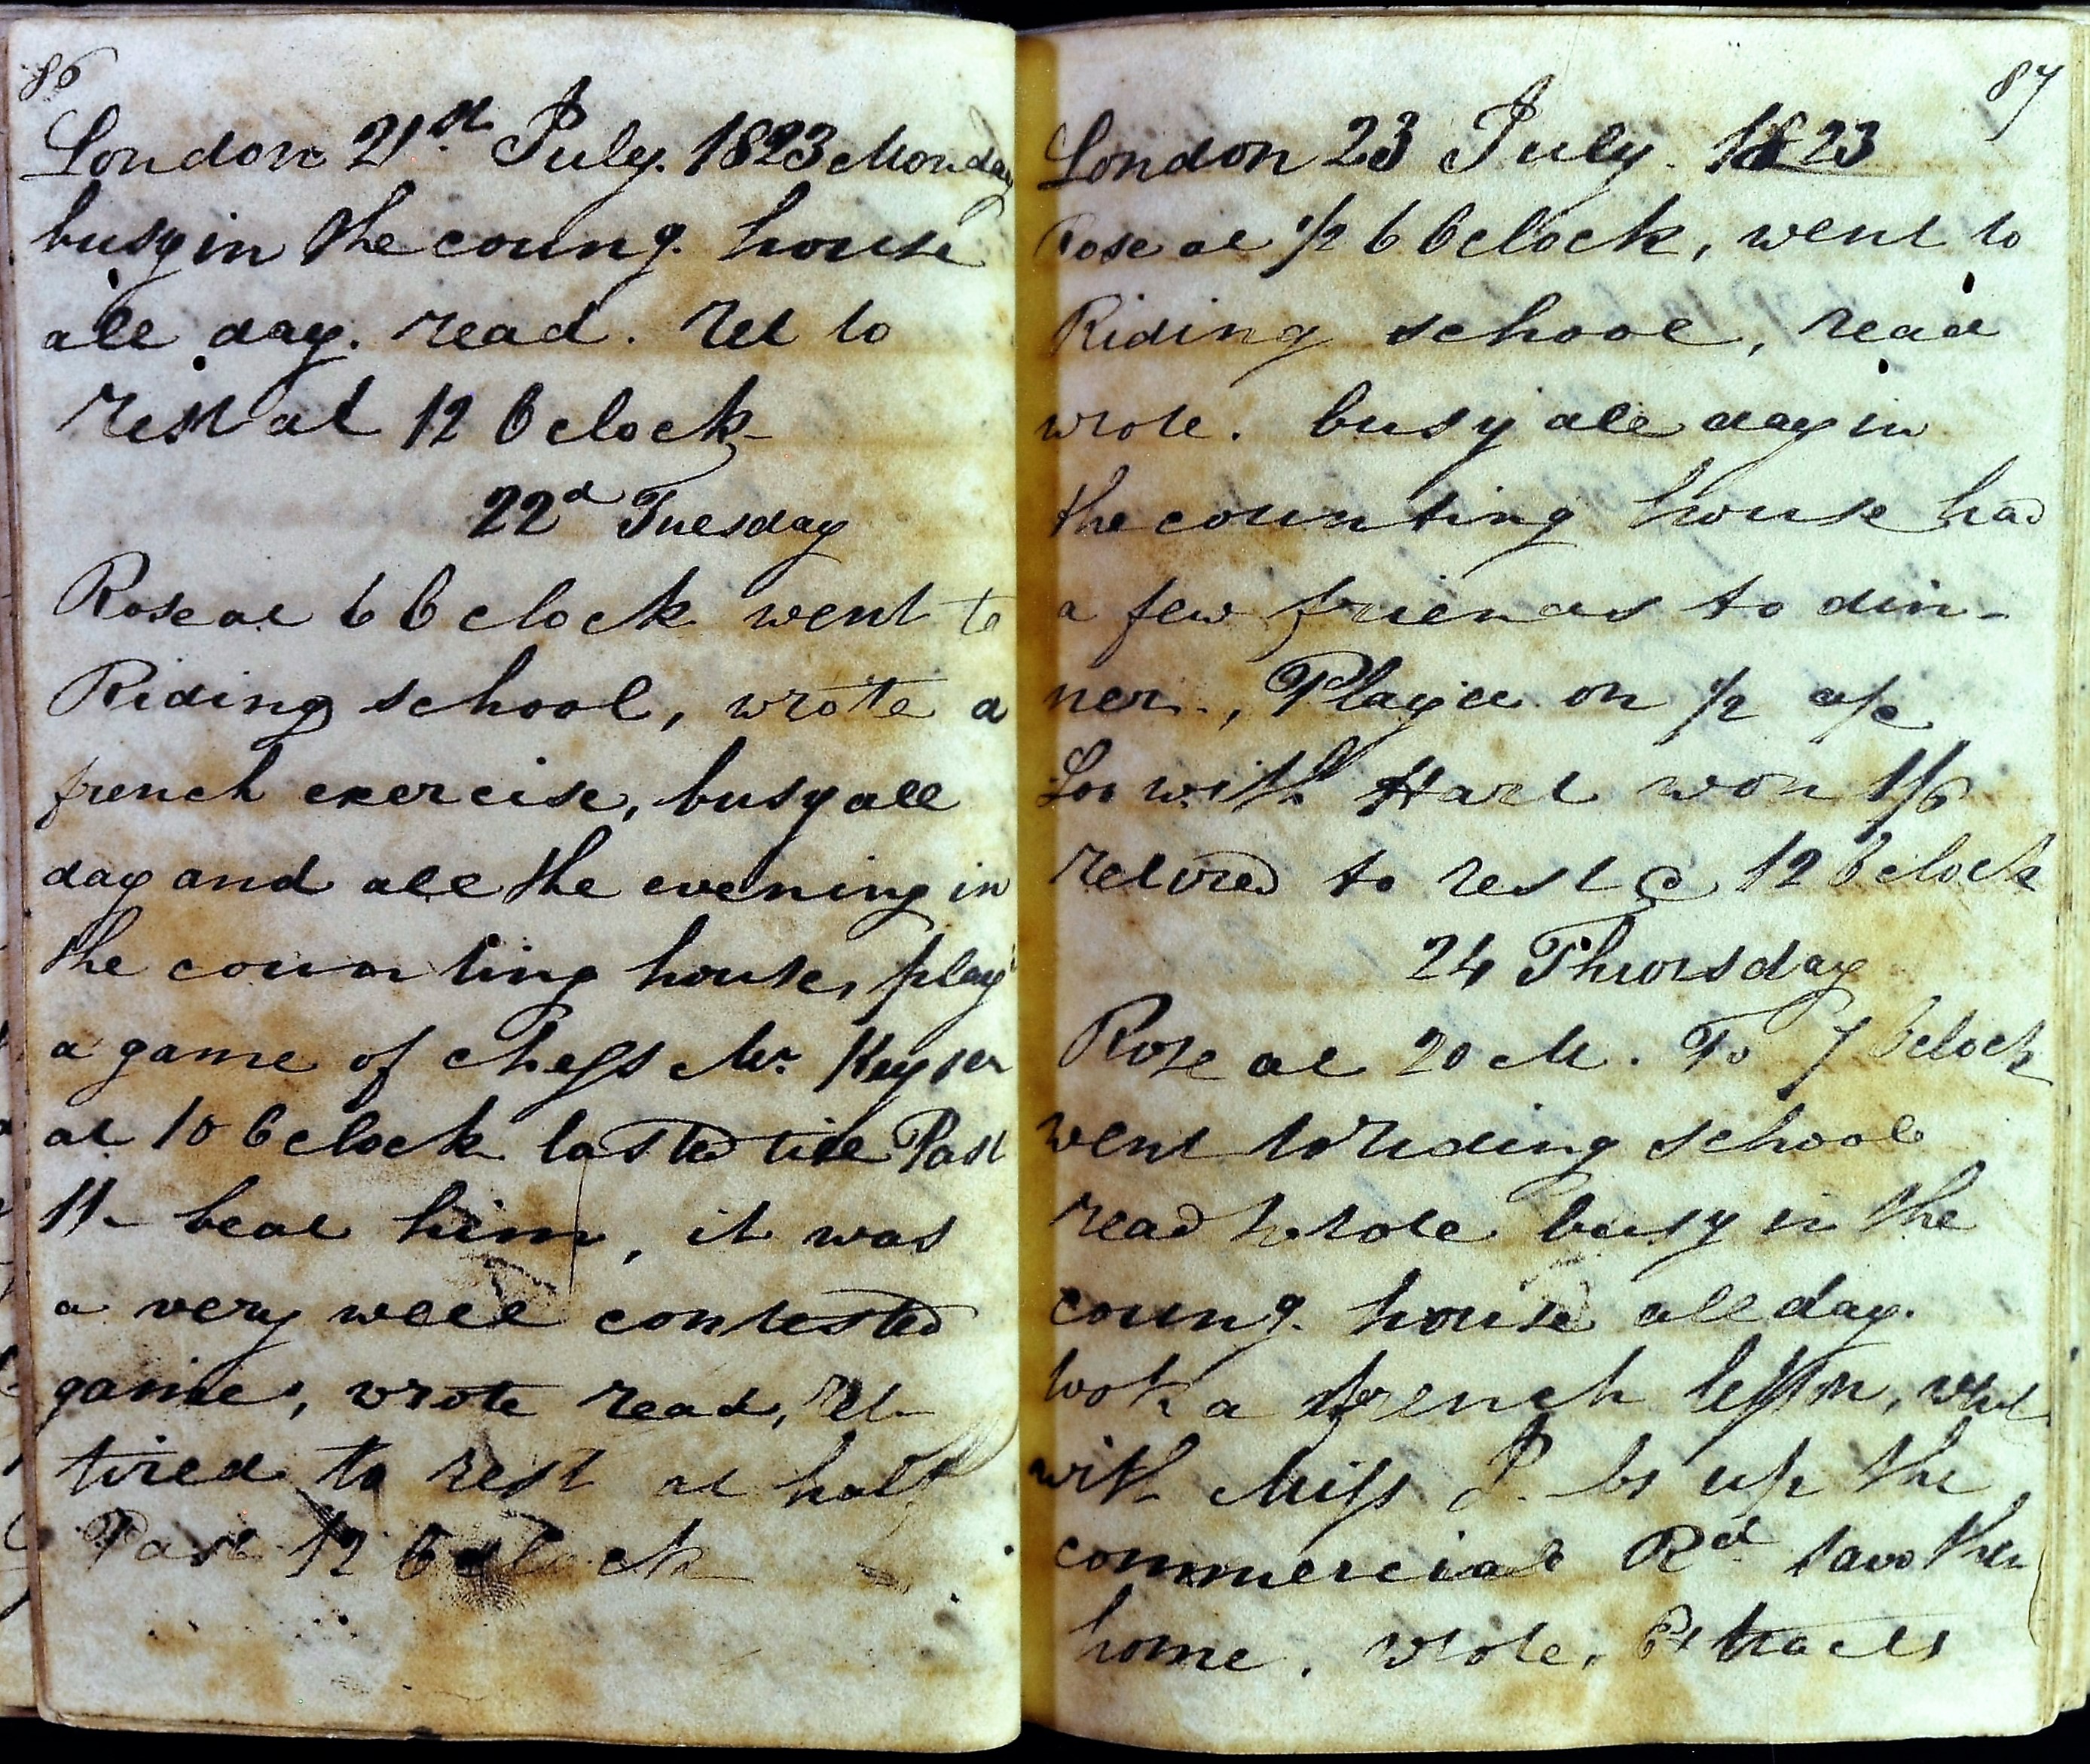 86
London 21st July. 1823 Monday
busy in the coung. house
all day. read. Ret to
rest at 12 Oclock
22d Tuesday
Rose at 6 Oclock went to
Riding school, wrote a
french exercise, busy all
day and all the evening in
the counting house, play'
a game of chess Mr. Keyser
at 10 Oclock lasted till Past
11 - beat him, it was
a very well contested
game, wrote read, Re-
tired to rest at half
Past 12 Oclock
87
London 23 July. 1823
Rose at 1/2 6 Oclock, went to
Riding school, read
wrote. busy all day in
the counting house had
a few friends to din-
ner., Played on 1/2 a/c
Loo with Hart won 1/6
retired to rest @ 12 Oclock
24 Thursday
Rose at 20 M. To 7 Oclock
went to riding school
read wrote busy in the
coung. house all day.
took a french lesson, went
with Miss J. up the
commercial Rd saw her
home. wrote. Extracts